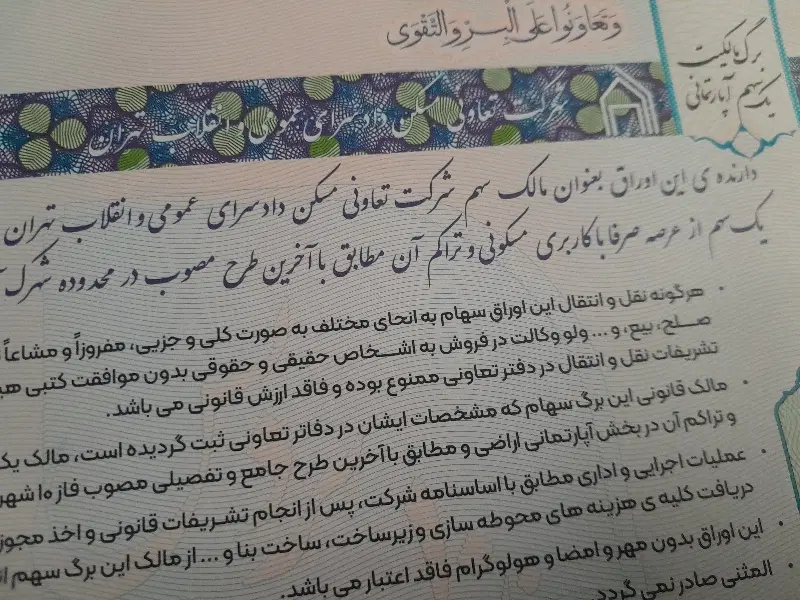 وَتَعَاوَنُوا عَلَى الْبِرِّ وَالتَّقْوَى
برگ مالکیت
یک سهم آپارتمانی
شرکت تعاونی مسکن دادسرای عمومی و انقلاب تهران
دارنده ی این اوراق بعنوان مالک سهم شرکت تعاونی مسکن دادسرای عمومی و انقلاب تهران
یک سهم از عرصه صرفا با کاربری مسکونی و تراکم آن مطابق با آخرین طرح مصوب در محدوده شهرک
• هرگونه نقل و انتقال این اوراق سهام به انحای مختلف به صورت کلی و جزیی، مفروزاً و مشاعاً
صلح، بیع، و ... ولو وکالت در فروش به اشخاص حقیقی و حقوقی بدون موافقت کتبی
تشریفات نقل و انتقال در دفتر تعاونی ممنوع بوده و فاقد ارزش قانونی می باشد.
• مالک قانونی این برگ سهام که مشخصات ایشان در دفاتر تعاونی ثبت گردیده است، مالک یک
و تراکم آن در بخش آپارتمانی اراضی و مطابق با آخرین طرح جامع و تفصیلی مصوب فاز ۱۰ شهر
• عملیات اجرایی و اداری مطابق با اساسنامه شرکت، پس از انجام تشریفات قانونی و اخذ مجوز
دریافت کلیه ی هزینه های محوطه سازی و زیرساخت، ساخت بنا و ... از مالک این برگ سهم
• این اوراق بدون مهر و امضا و هولوگرام فاقد اعتبار می باشد.
• المثنی صادر نمی گردد